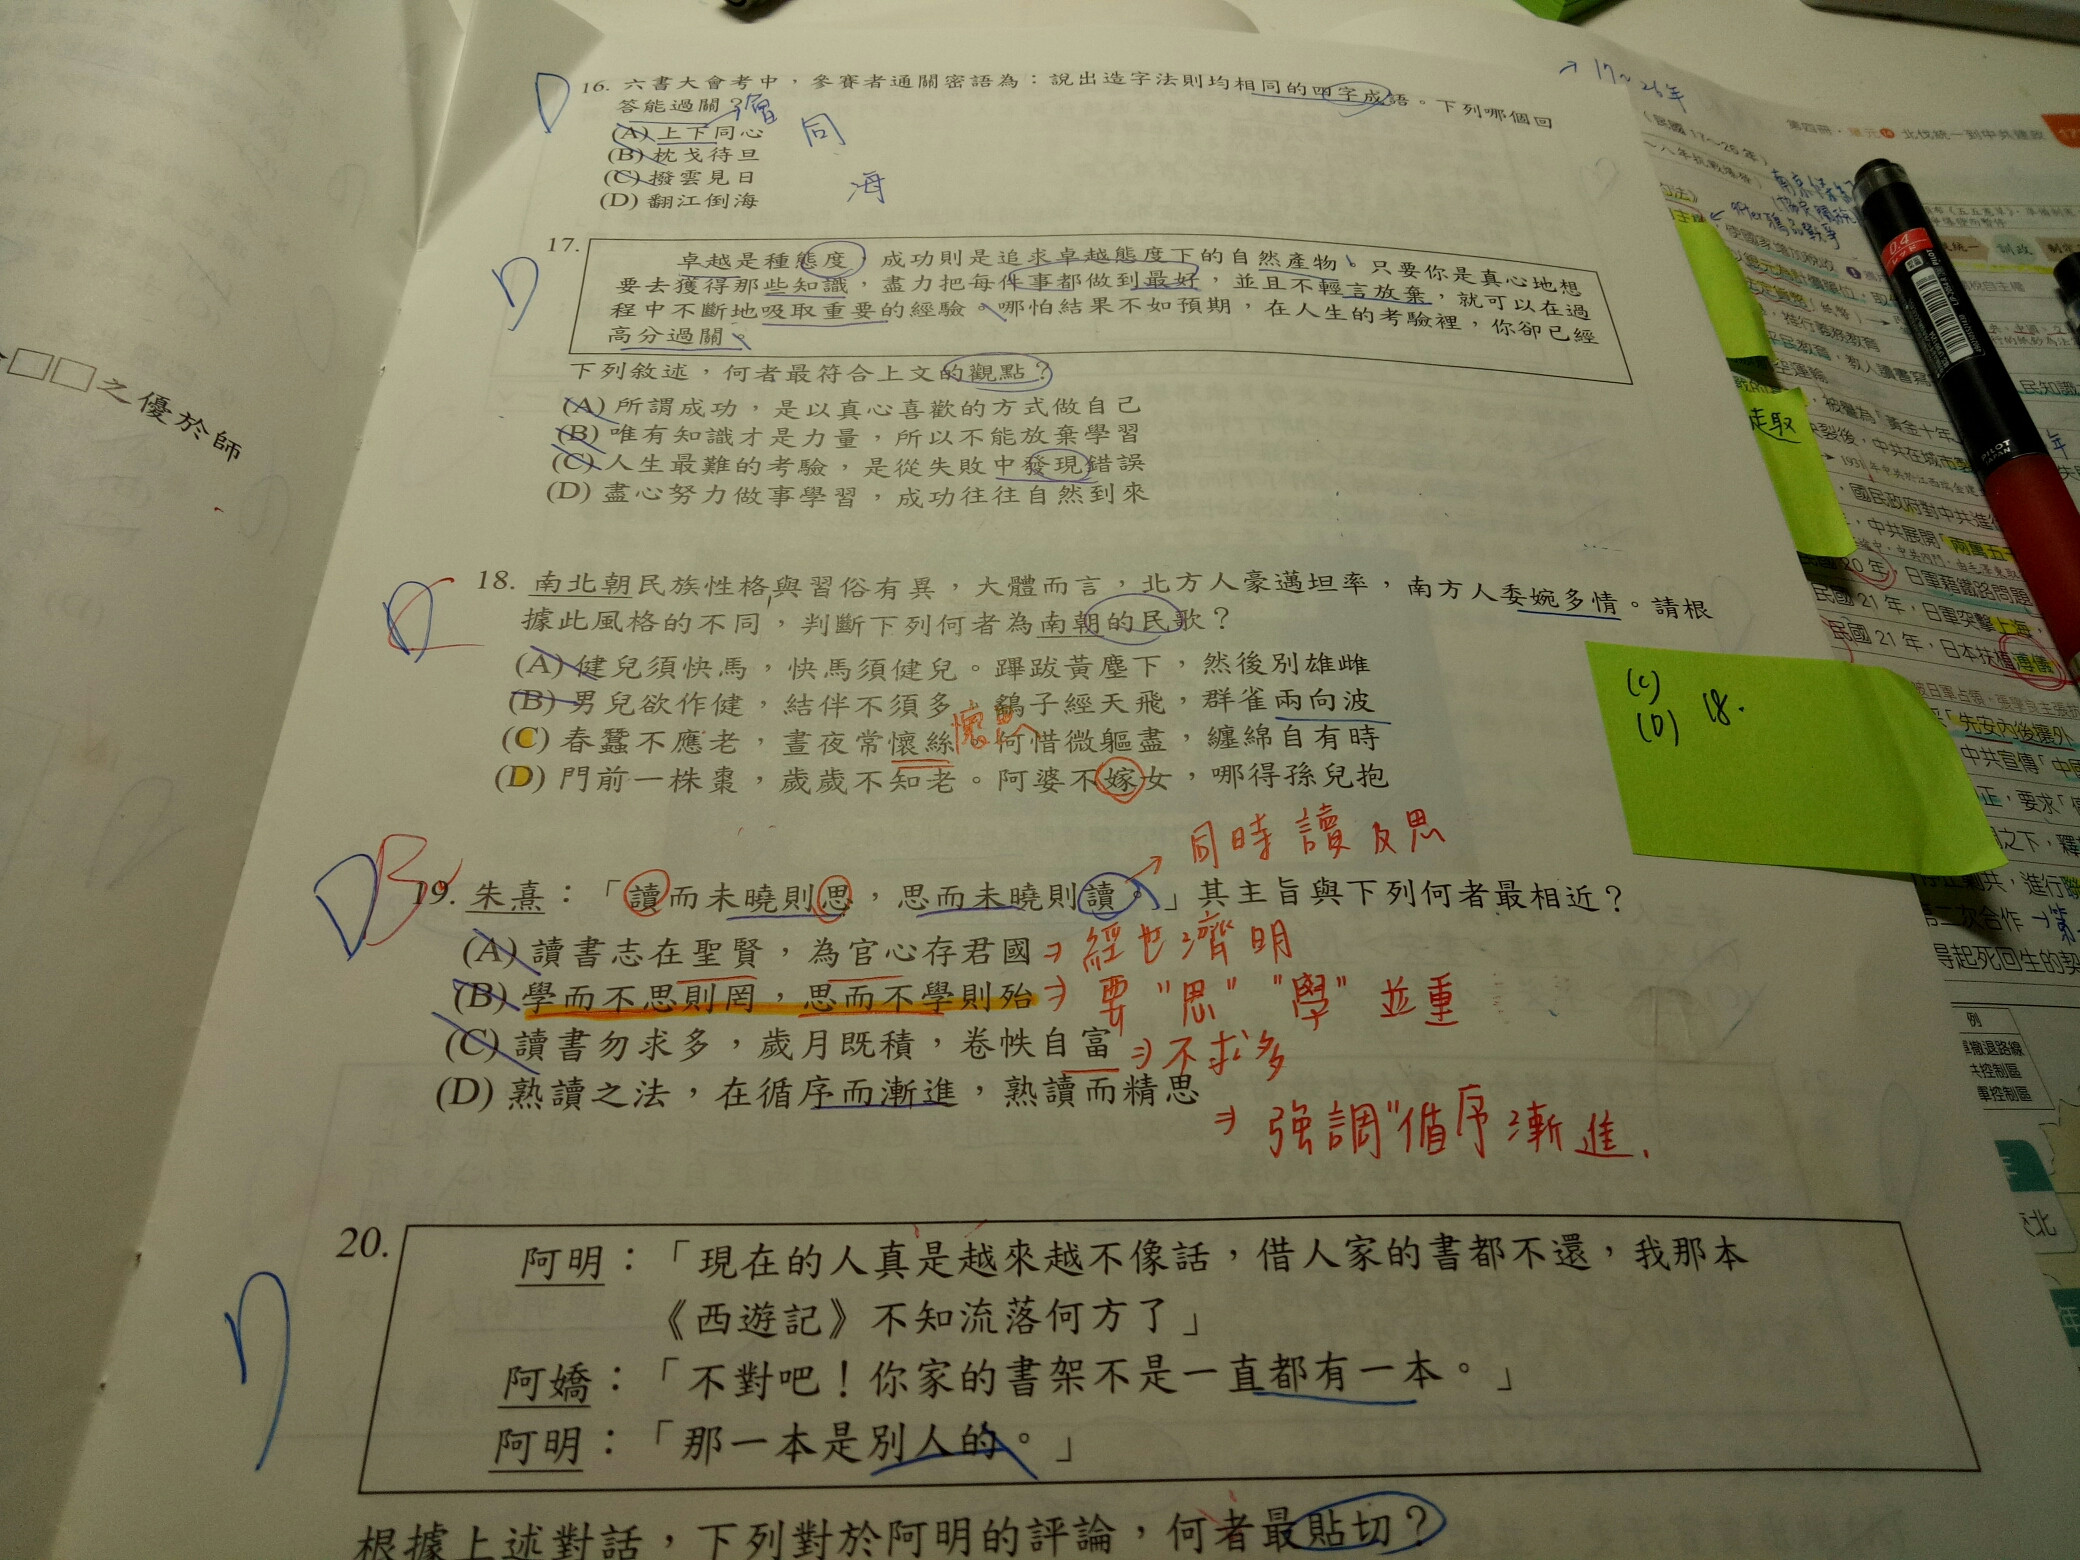 16. 六書大會考中，參賽者通關密語為：說出造字法則均相同的四字成語。下列哪個回
答能過關？
(A) 上下同心
同
(B) 枕戈待旦
(C) 撥雲見日
海
(D) 翻江倒海
17. 卓越是種態度，成功則是追求卓越態度下的自然產物。只要你是真心地想
要去獲得那些知識，盡力把每件事都做到最好，並且不輕言放棄，就可以在過
程中不斷地吸取重要的經驗。哪怕結果不如預期，在人生的考驗裡，你卻已經
高分過關。
下列敘述，何者最符合上文的觀點？
(A) 所謂成功，是以真心喜歡的方式做自己
(B) 唯有知識才是力量，所以不能放棄學習
(C) 人生最難的考驗，是從失敗中發現錯誤
(D) 盡心努力做事學習，成功往往自然到來
18. 南北朝民族性格與習俗有異，大體而言，北方人豪邁坦率，南方人委婉多情。請根
據此風格的不同，判斷下列何者為南朝的民歌？
(A) 健兒須快馬，快馬須健兒。蹕跋黃塵下，然後別雄雌
(B) 男兒欲作健，結伴不須多。鷂子經天飛，群雀兩向波
(C) 春蠶不應老，晝夜常懷絲。何惜微軀盡，纏綿自有時
懷思
(D) 門前一株棗，歲歲不知老。阿婆不嫁女，哪得孫兒抱
D B
同時讀及思
19. 朱熹：「讀而未曉則思，思而未曉則讀。」其主旨與下列何者最相近？
(A) 讀書志在聖賢，為官心存君國 ⇒ 經世濟明
(B) 學而不思則罔，思而不學則殆 ⇒ 要"思" "學" 並重
(C) 讀書勿求多，歲月既積，卷帙自富 ⇒ 不求多
(D) 熟讀之法，在循序而漸進，熟讀而精思
⇒ 強調"循序漸進.
20. 阿明：「現在的人真是越來越不像話，借人家的書都不還，我那本
《西遊記》不知流落何方了」
阿嬌：「不對吧！你家的書架不是一直都有一本。」
阿明：「那一本是別人的。」
根據上述對話，下列對於阿明的評論，何者最貼切？
□□之優於師
(C)
(D) 18.
→ 17~26年
第四冊．單元 北伐統一到中共建政
走取
PILOT
JAPAN
0.4
國民政府對中共進
中共展開「兩萬五
日軍藉鐵路問題
民國21年，日軍突擊上海，
民國21年，日本扶植溥儀
「先安內後攘外
得起死回生的契
例